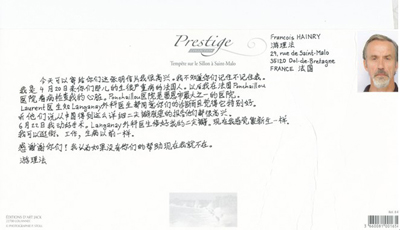 Prestige
Tempête sur le Sillon à Saint-Malo
Francois HAINRY
游理法
29, rue de Saint-Malo
35120 Dol-de-Bretagne
FRANCE 法国
今天可以寄给你们这张明信片我很高兴。我不知道你们记住不记住我。
我是4月20日在你们那儿的生很严重病的法国人。以后我在法国Ponchaillou
医院看病检查我的心脏。Ponchaillou医院是最大之一的医院。
Laurent医生和Langanay外科医生都
6月22日我动好手术。Langanay外科医生修好我的二尖瓣。现在我感觉重新生一样。
我可以运动、工作,生病以前一样。
感谢谢你们!我认为如果没有你们的帮助现在我就不在。
游理法